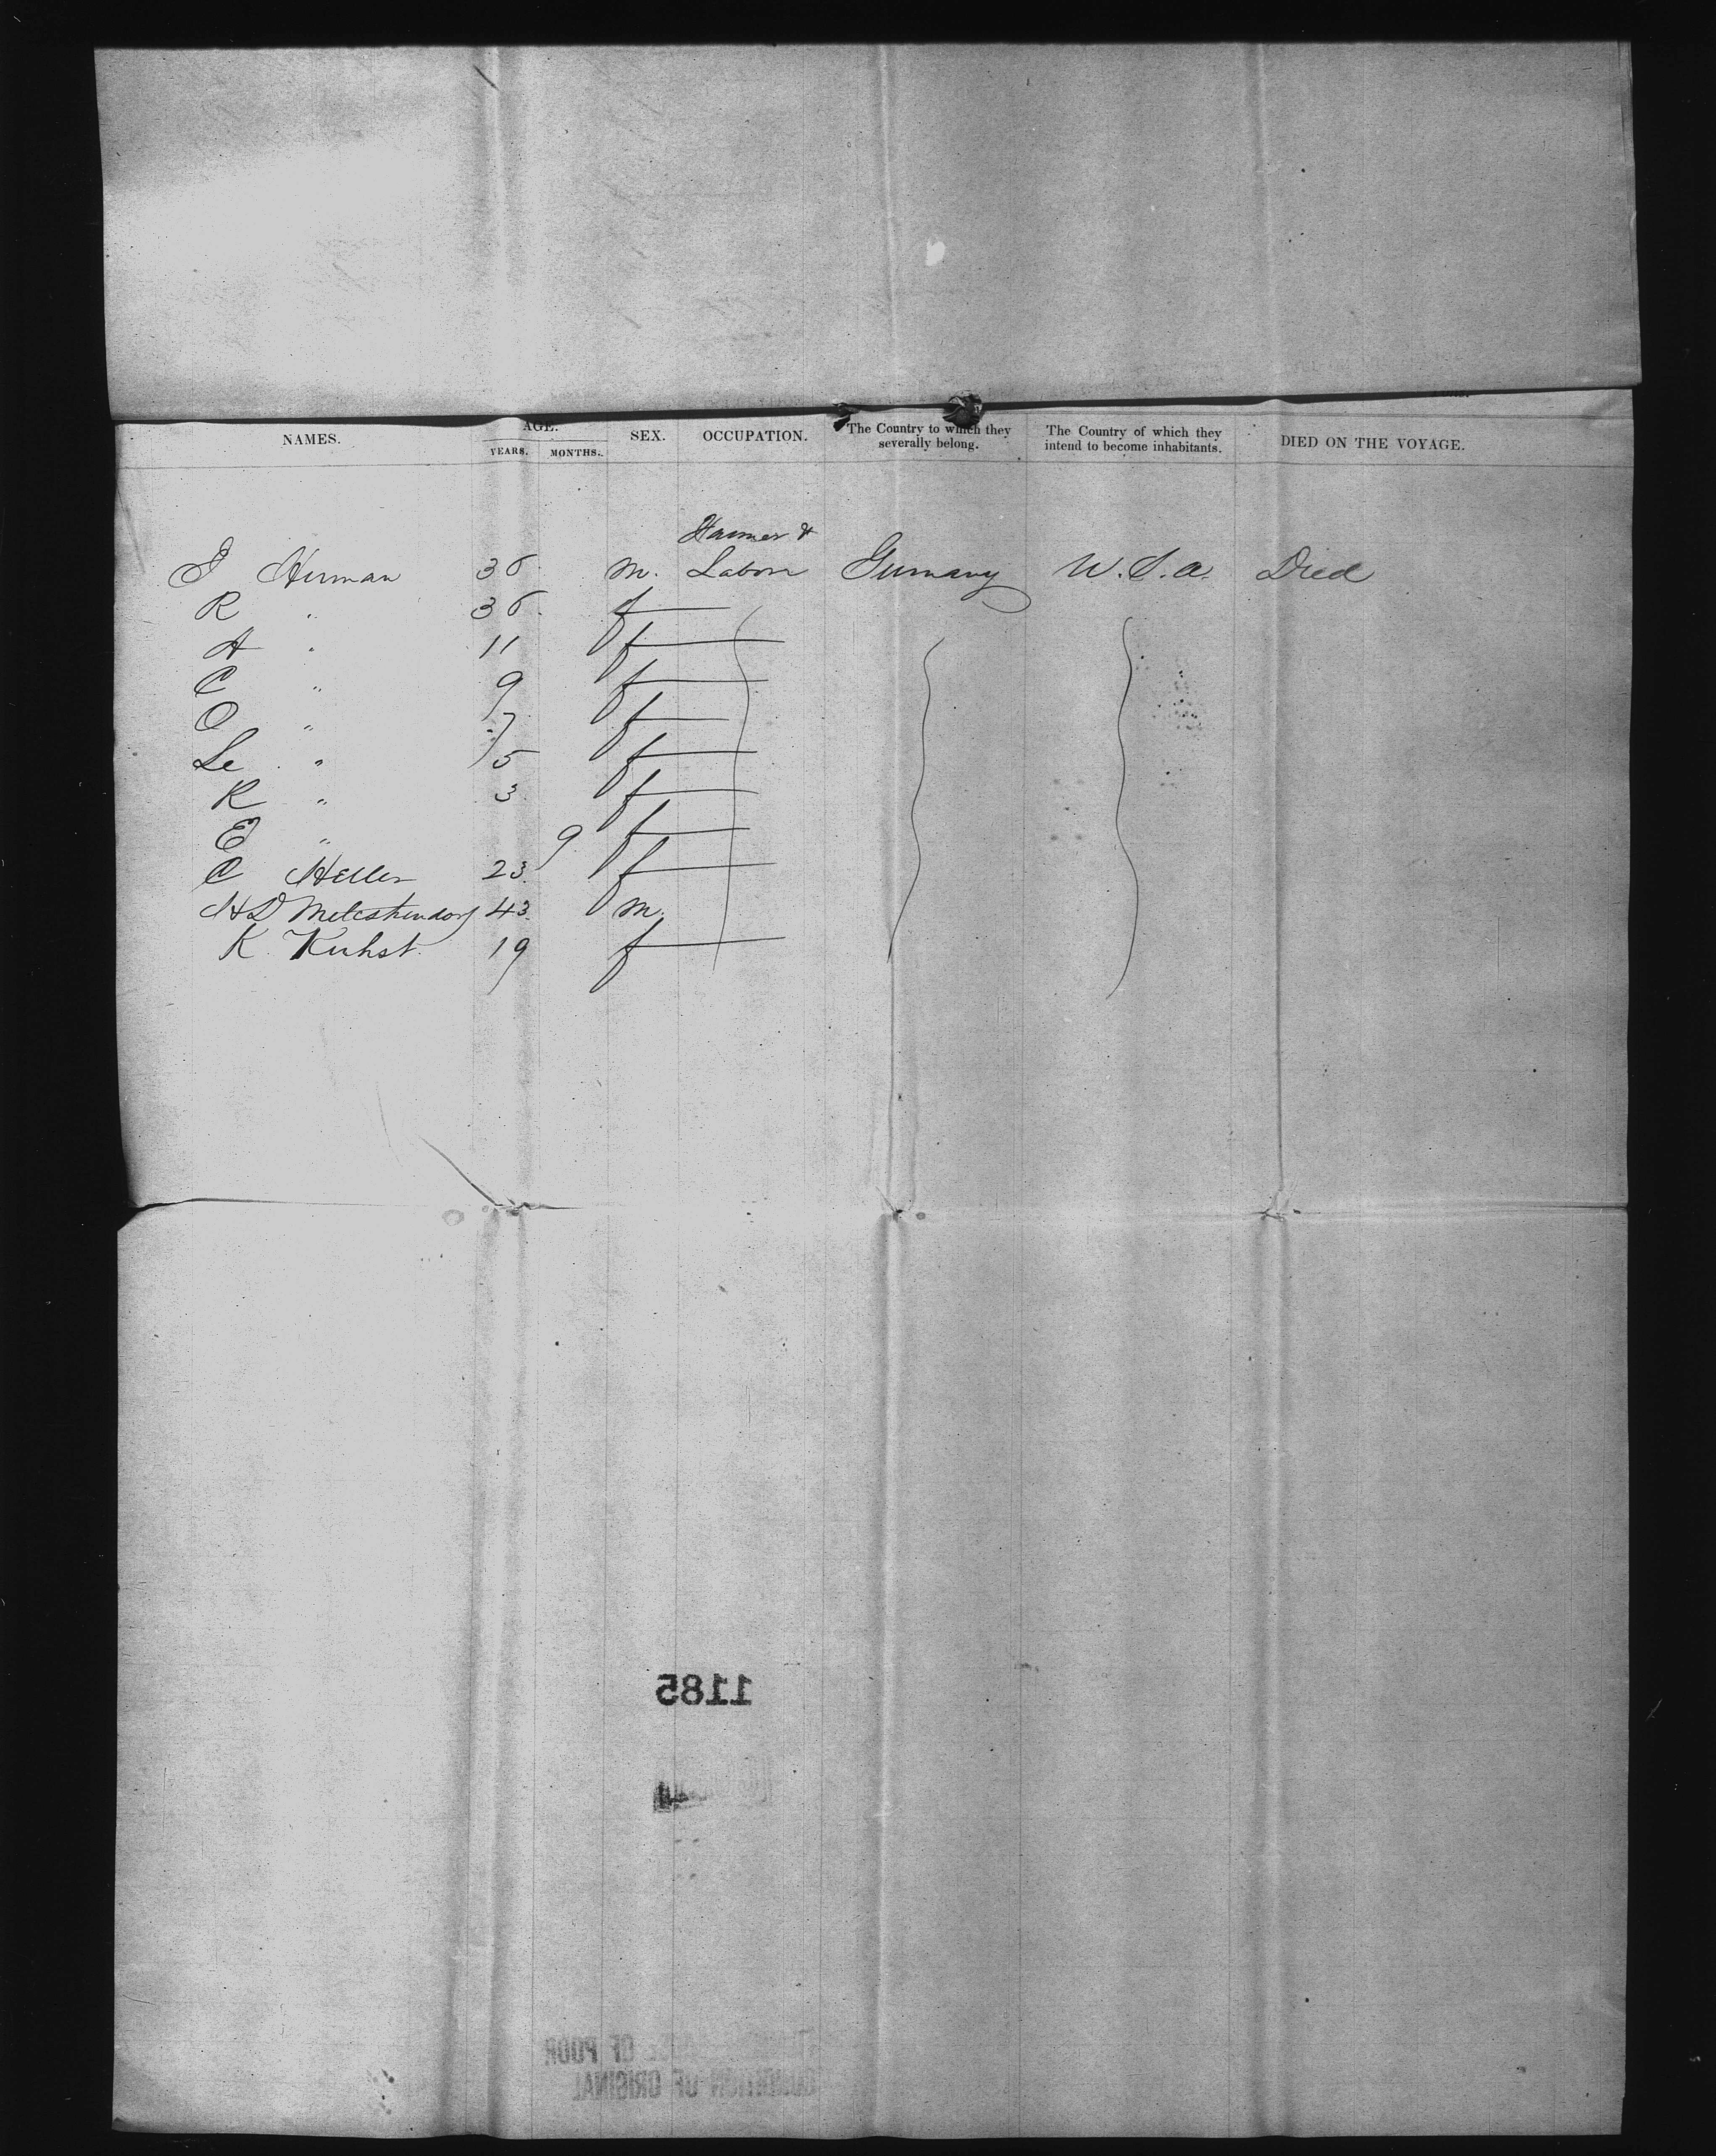 NAMES. AGE. YEARS. MONTHS. SEX. OCCUPATION. The Country to which they severally belong. The Country of which they intend to become inhabitants. DIED ON THE VOYAGE.
Farmer &
J Herman 36 m. Labor Germany U.S.A. Died
R " 36. f
A " 11 f
C " 9 f
O " 7 f
Le " 5 f
R " 3 f
E " 9 f
C Heller 23. f
HD 43. m.
K. Kuhst. 19 f
1185
OF POOR
CONDITION OF ORIGINAL